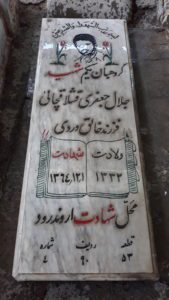 گروهبان یکم شهید
جلال جعفری قشلاقچائی
فرزند خالق وردی
ولادت شهادت
۱۳۴۲ ۱۳۶۴،۱۲،۱
محل شهادت اروندرود
قطعه ردیف شماره
۵۳ ۹۰ ۴